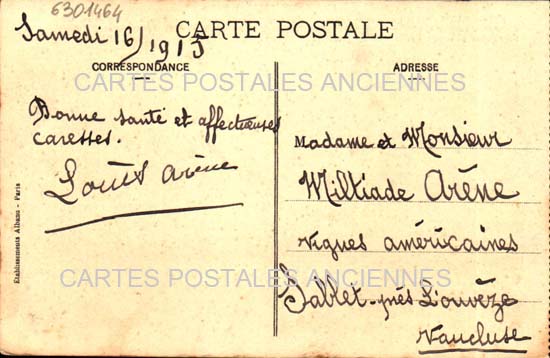 6301464
Samedi 16/1915
CARTE POSTALE
CORRESPONDANCE
Bonne santé et affectueuses
caresses.
Louis Arène
ADRESSE
Madame et Monsieur
Miltiade Arène
Vignes américaines
Sablet-près L'ouvèze
Vaucluse
Etablissements Albano - Paris
CARTES POSTALES ANCIENNES
CARTES POSTALES ANCIENNES